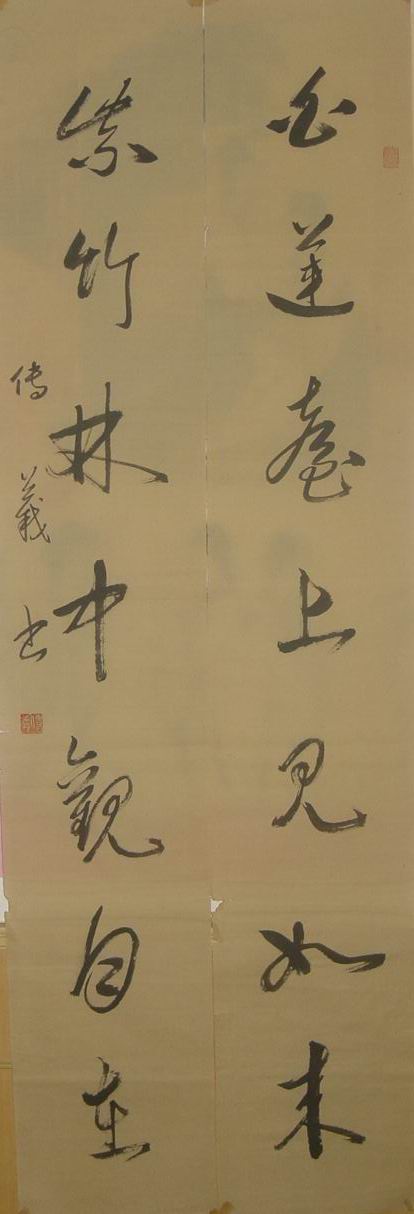 白蓮臺上見如来
紫竹林中觀自在
傳義書